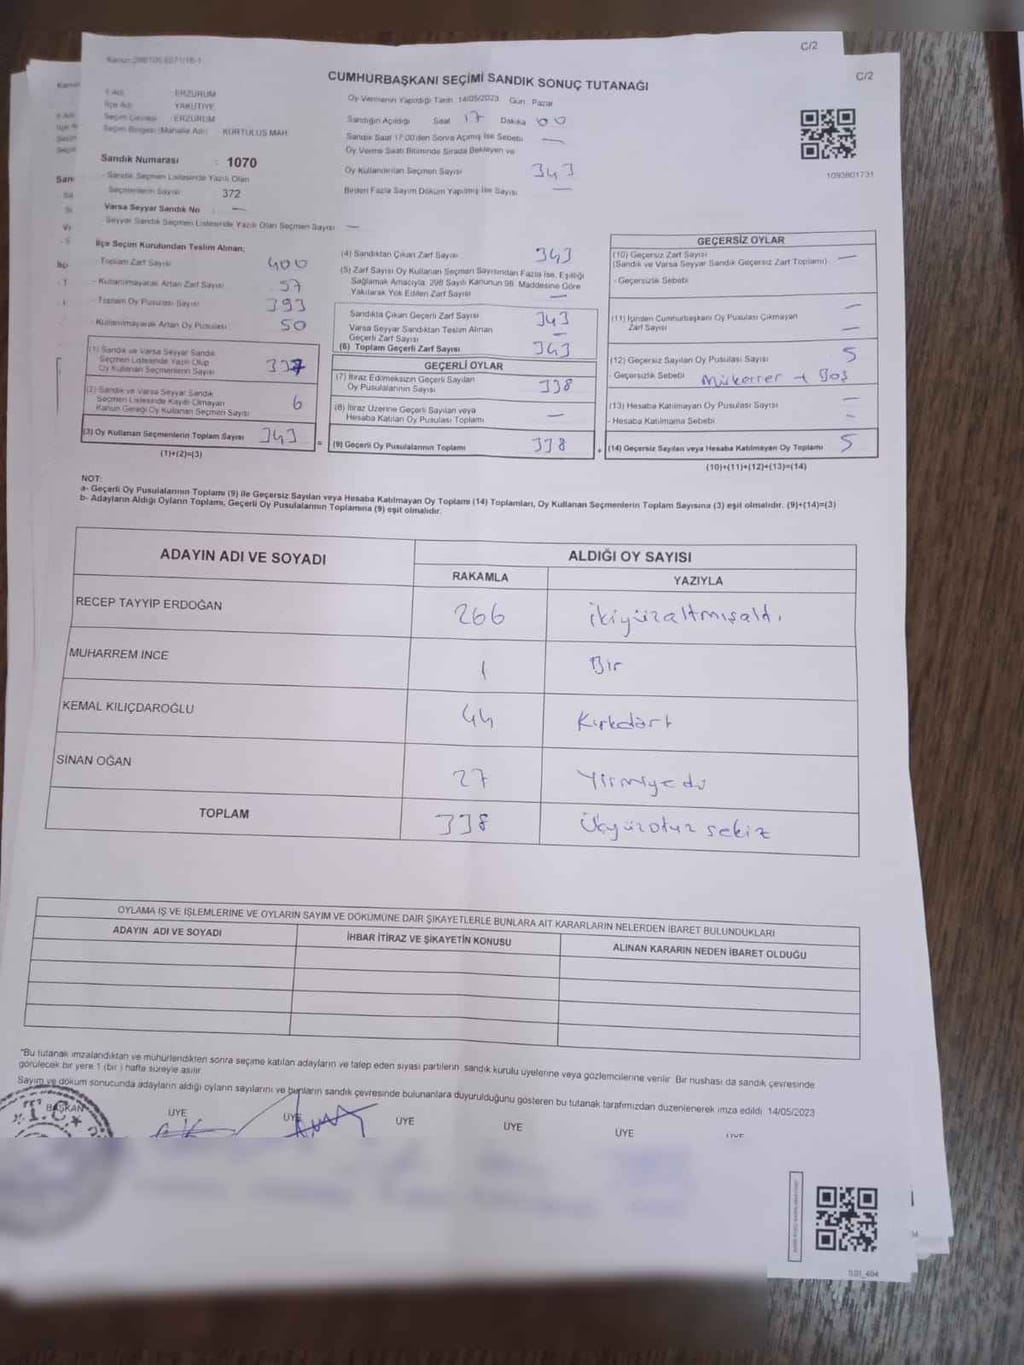 C/2
C/2
CUMHURBAŞKANI SEÇİMİ SANDIK SONUÇ TUTANAĞI
İl Adı : ERZURUM
İlçe Adı : YAKUTİYE
Seçim Çevresi : ERZURUM
Seçim Bölgesi (Mahalle Adı) : KURTULUS MAH.
Sandık Numarası : 1070
Sandık Seçmen Listesinde Yazılı Olan
Seçmenlerin Sayısı 372
Varsa Seyyar Sandık No : —
Seyyar Sandık Seçmen Listesinde Yazılı Olan Seçmen Sayısı —
Oy Vermenin Yapıldığı Tarih 14/05/2023 Gün Pazar
Sandığın Açıldığı Saat 17 Dakika 00
Sandık Saat 17:00'den Sonra Açılmış İse Sebebi —
Oy Verme Saati Bitiminde Sırada Bekleyen ve
Oy Kullandırılan Seçmen Sayısı 343
Birden Fazla Sayım Döküm Yapılmış İse Sayısı —
1093801731
İlçe Seçim Kurulundan Teslim Alınan;
- Toplam Zarf Sayısı 400
- Kullanılmayarak Artan Zarf Sayısı 57
- Toplam Oy Pusulası Sayısı 393
- Kullanılmayarak Artan Oy Pusulası 50
(1) Sandık ve Varsa Seyyar Sandık
Seçmen Listesinde Yazılı Olup
Oy Kullanan Seçmenlerin Sayısı 337
(2) Sandık ve Varsa Seyyar Sandık
Seçmen Listesinde Kayıtlı Olmayan
Kanun Gereği Oy Kullanan Seçmen Sayısı 6
(3) Oy Kullanan Seçmenlerin Toplam Sayısı 343
(1)+(2)=(3)
(4) Sandıktan Çıkan Zarf Sayısı 343
(5) Zarf Sayısı Oy Kullanan Seçmen Sayısından Fazla İse, Eşitliği
Sağlamak Amacıyla, 298 Sayılı Kanunun 98. Maddesine Göre
Yakılarak Yok Edilen Zarf Sayısı —
Sandıkta Çıkan Geçerli Zarf Sayısı 343
Varsa Seyyar Sandıktan Teslim Alınan
Geçerli Zarf Sayısı —
(6) Toplam Geçerli Zarf Sayısı 343
GEÇERLİ OYLAR
(7) İtiraz Edilmeksizin Geçerli Sayılan
Oy Pusulalarının Sayısı 338
(8) İtiraz Üzerine Geçerli Sayılan veya
Hesaba Katılan Oy Pusulası Toplamı —
(9) Geçerli Oy Pusulalarının Toplamı 338
GEÇERSİZ OYLAR
(10) Geçersiz Zarf Sayısı —
(Sandık ve Varsa Seyyar Sandık Geçersiz Zarf Toplamı)
- Geçersizlik Sebebi
(11) İçinden Cumhurbaşkanı Oy Pusulası Çıkmayan
Zarf Sayısı —
(12) Geçersiz Sayılan Oy Pusulası Sayısı 5
- Geçersizlik Sebebi Mükerrer + Boş
(13) Hesaba Katılmayan Oy Pusulası Sayısı —
- Hesaba Katılmama Sebebi —
(14) Geçersiz Sayılan veya Hesaba Katılmayan Oy Toplamı 5
(10)+(11)+(12)+(13)=(14)
NOT:
a- Geçerli Oy Pusulalarının Toplamı (9) ile Geçersiz Sayılan veya Hesaba Katılmayan Oy Toplamı (14) Toplamları, Oy Kullanan Seçmenlerin Toplam Sayısına (3) eşit olmalıdır. (9)+(14)=(3)
b- Adayların Aldığı Oyların Toplamı, Geçerli Oy Pusulalarının Toplamına (9) eşit olmalıdır.
ADAYIN ADI VE SOYADI ALDIĞI OY SAYISI
RAKAMLA YAZIYLA
RECEP TAYYİP ERDOĞAN 266 ikiyüzaltmışaltı
MUHARREM İNCE 1 Bir
KEMAL KILIÇDAROĞLU 44 Kırkdört
SİNAN OĞAN 27 Yirmiyedi
TOPLAM 338 Üçyüzotuz sekiz
OYLAMA İŞ VE İŞLEMLERİNE VE OYLARIN SAYIM VE DÖKÜMÜNE DAİR ŞİKAYETLERLE BUNLARA AİT KARARLARIN NELERDEN İBARET BULUNDUKLARI
ADAYIN ADI VE SOYADI İHBAR İTİRAZ VE ŞİKAYETİN KONUSU ALINAN KARARIN NEDEN İBARET OLDUĞU
"Bu tutanak imzalandıktan ve mühürlendikten sonra seçime katılan adayların ve talep eden siyasi partilerin sandık kurulu üyelerine veya gözlemcilerine verilir. Bir nüshası da sandık çevresinde
görülecek bir yere 1 (bir) hafta süreyle asılır.
Sayım ve döküm sonucunda adayların aldığı oyların sayılarını ve bunların sandık çevresinde bulunanlara duyurulduğunu gösteren bu tutanak tarafımızdan düzenlenerek imza edildi. 14/05/2023
BAŞKAN ÜYE ÜYE ÜYE ÜYE ÜYE ÜYE
T.C.